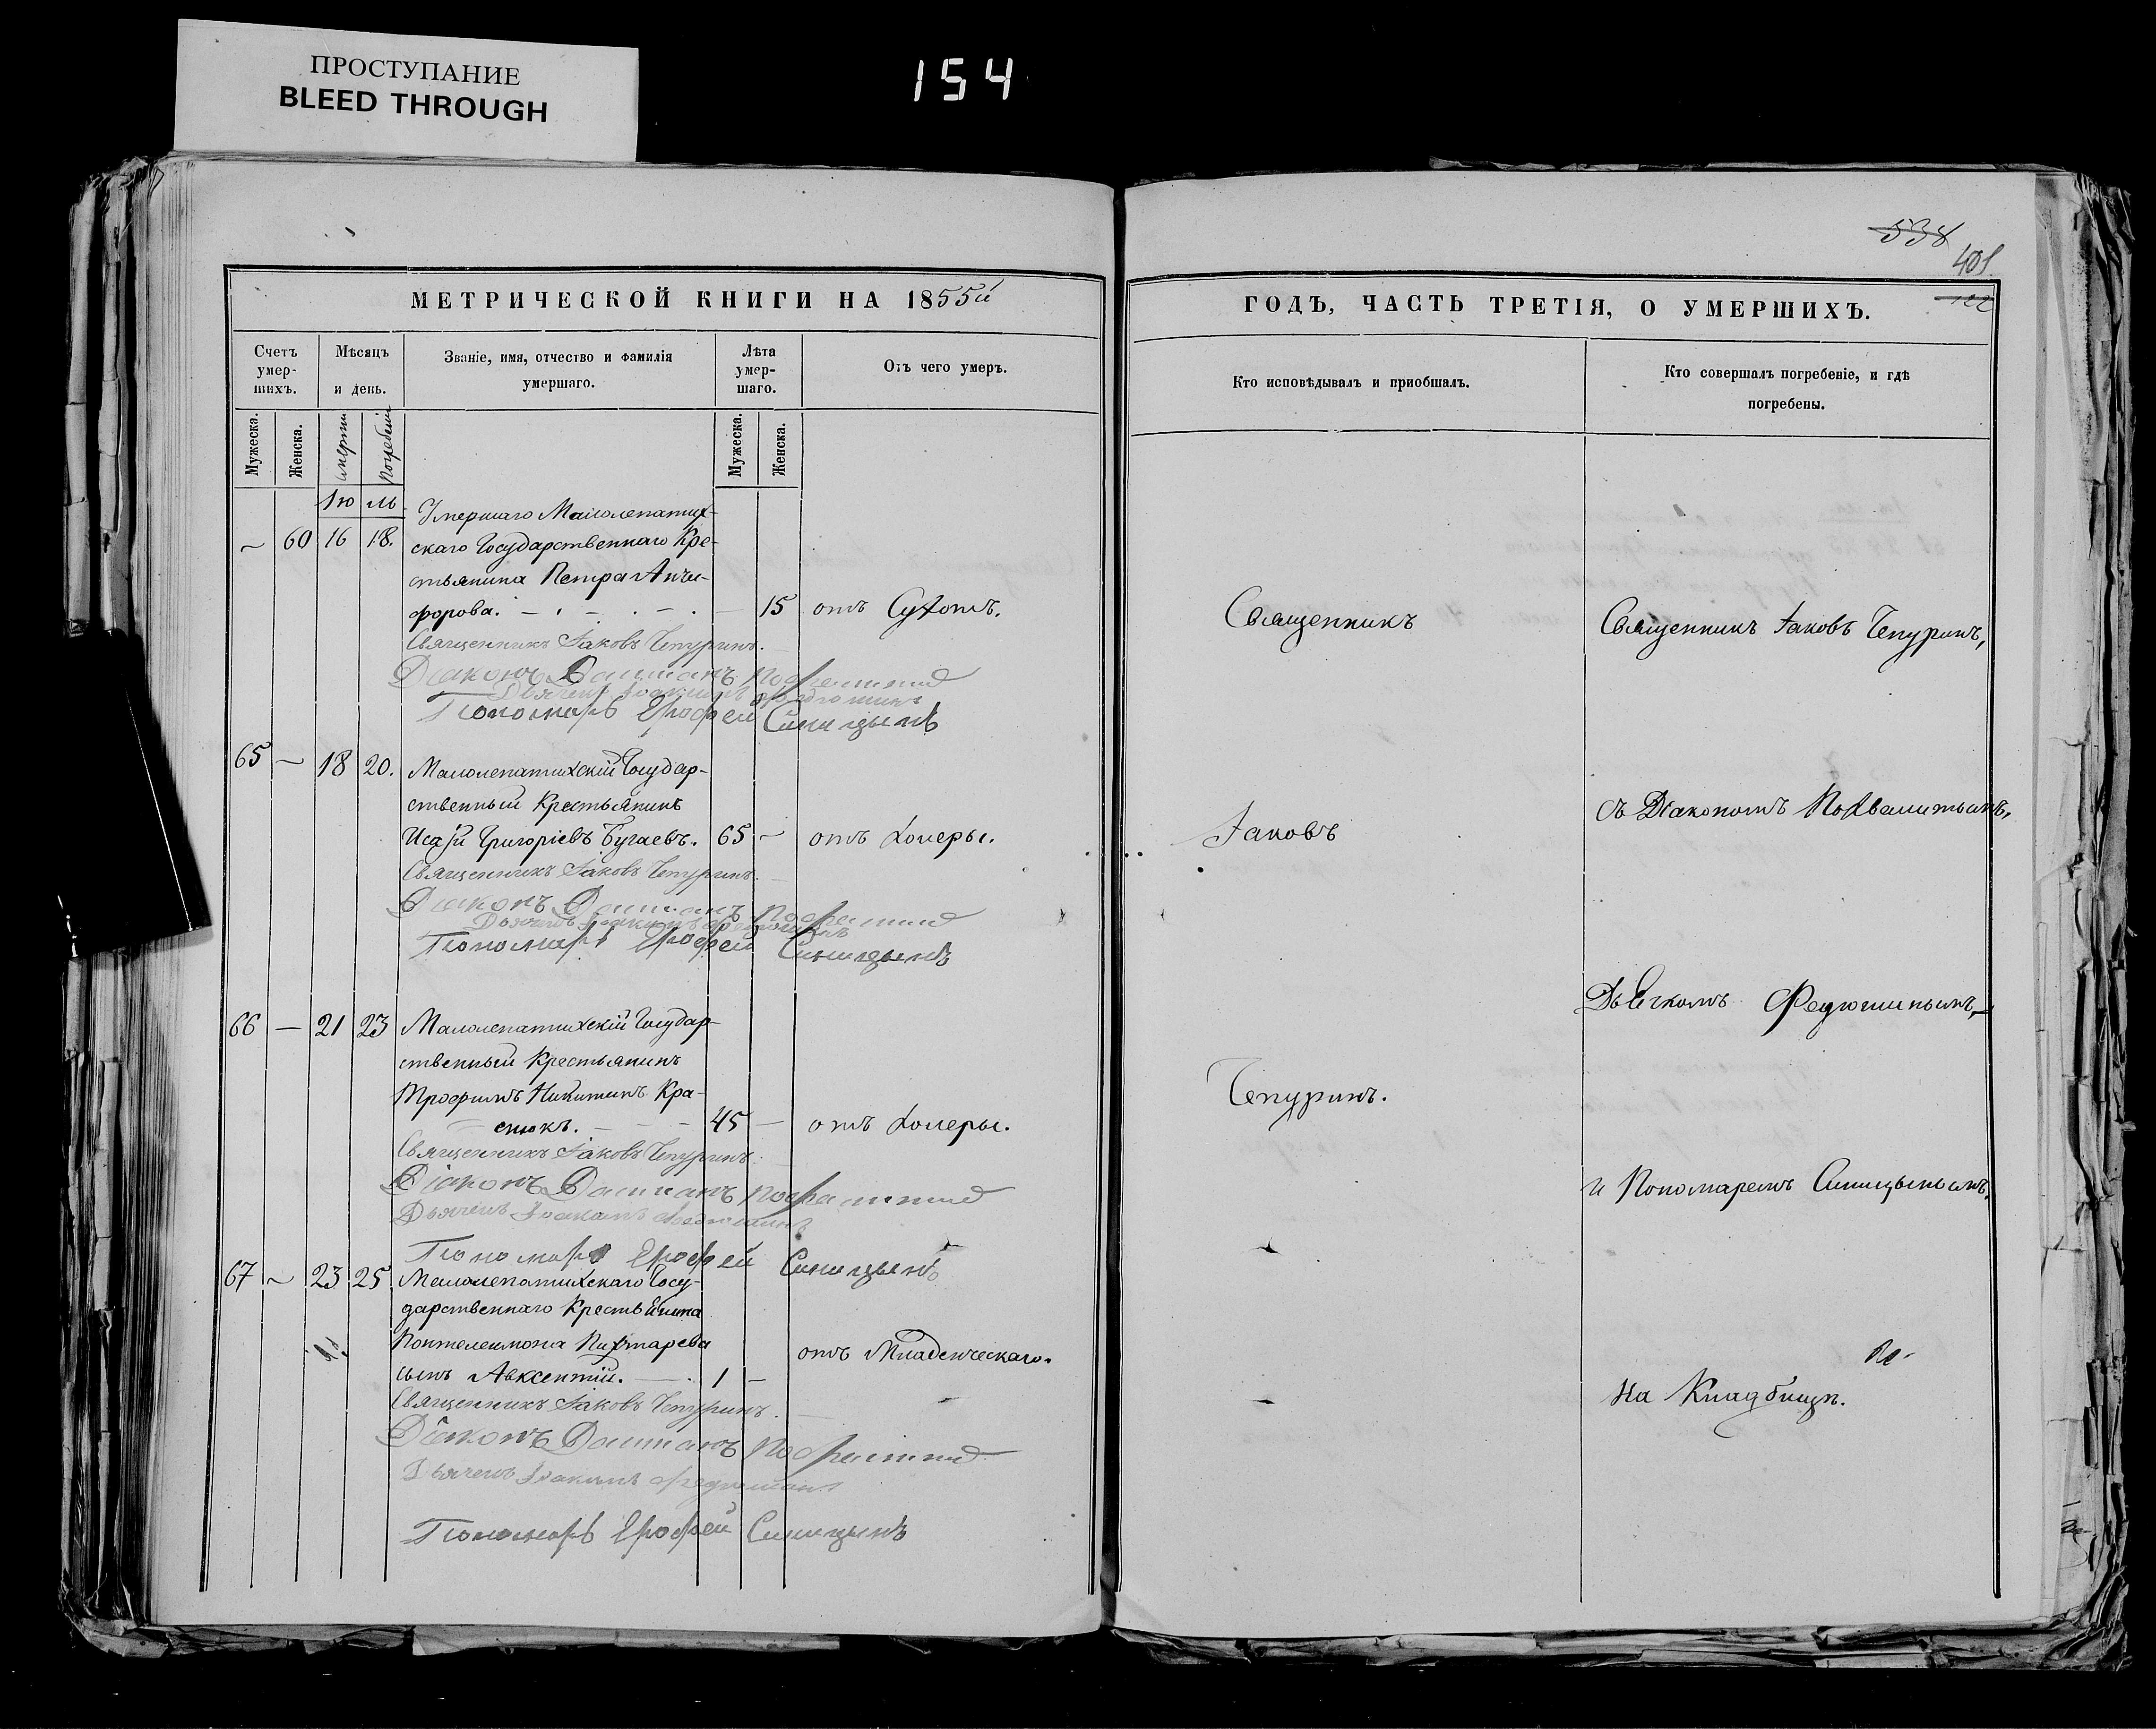 ПРОСТУПАНИЕ
BLEED THROUGH
154
МЕТРИЧЕСКОЙ КНИГИ НА 1855й
Счетъ умер-шихъ.
Мѣсяцъ и день.
Званіе, имя, отчество и фамилія умершаго.
Лѣта умер-шаго.
Отъ чего умеръ.
Мужеска.
Женска.
смерти
погребенія
Мужеска.
Женска.
Іюль
Умершаго Малолепатих-
— 60 16 18. скаго Государственнаго Кре-
стьянина Петра Анчи-
форова. — 15 отъ Сухотъ.
Священникъ Іаковъ Чепуринъ.
Діаконъ Даміанъ
Дьячекъ Іоакимъ Федюшинъ
Пономарь Ерофей Синицынъ
65 — 18 20. Малолепатихскій Государ-
ственный Крестьянинъ
Исай Григорiевъ Бугаевъ. 65 — отъ Холеры.
Священникъ Іаковъ Чепуринъ.
Діаконъ Даміанъ
Дьячекъ Іоакимъ Федюшинъ
Пономарь Ерофей Синицынъ
66 — 21 23 Малолепатихскій Государ-
ственный Крестьянинъ
Трофимъ Никитинъ Кра-
снюкъ. — 45 — отъ Холеры.
Священникъ Іаковъ Чепуринъ.
Діаконъ Даміанъ
Дьячекъ Іоакимъ Федюшинъ
Пономарь Ерофей Синицынъ
67 — 23 25 Малолепатихскаго Госу-
дарственнаго Крестьянина
Понтелеимона Пихтарева
сынъ Авксентій. — 1 — отъ Младенческаго.
Священникъ Іаковъ Чепуринъ.
Діаконъ Даміанъ
Дьячекъ Іоакимъ Федюшинъ
Пономарь Ерофей Синицынъ
538
401
122
ГОДЪ, ЧАСТЬ ТРЕТІЯ, О УМЕРШИХЪ.
Кто исповѣдывалъ и приобщалъ.
Кто совершалъ погребеніе, и гдѣ погребены.
Священникъ
Іаковъ
Чепуринъ.
Священникъ Іаковъ Чепуринъ,
съ Діакономъ Похвалитымъ,
Дьячкомъ Федюшинымъ,
и Пономаремъ Синицынымъ.
На Кладбищѣ.